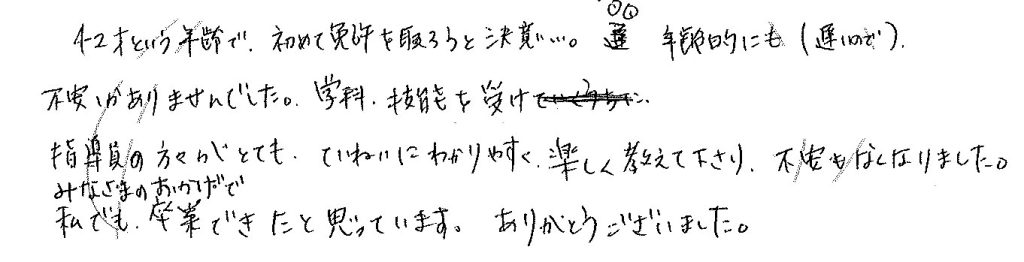 42才という年齢で、初めて免許を取ろうと決意…。 年齢的にも(遅いので)、
不安しかありませんでした。学科、技能を受け
指導員の方々がとても、ていねいにわかりやすく、楽しく教えて下さり、不安もなくなりました。
みなさまのおかげで
私でも、卒業できたと思っています。ありがとうございました。